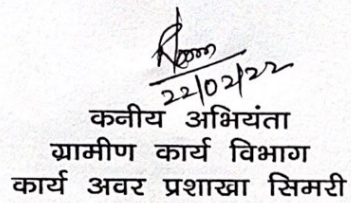 22/02/22
कनीय अभियंता
ग्रामीण कार्य विभाग
कार्य अवर प्रशाखा सिमरी